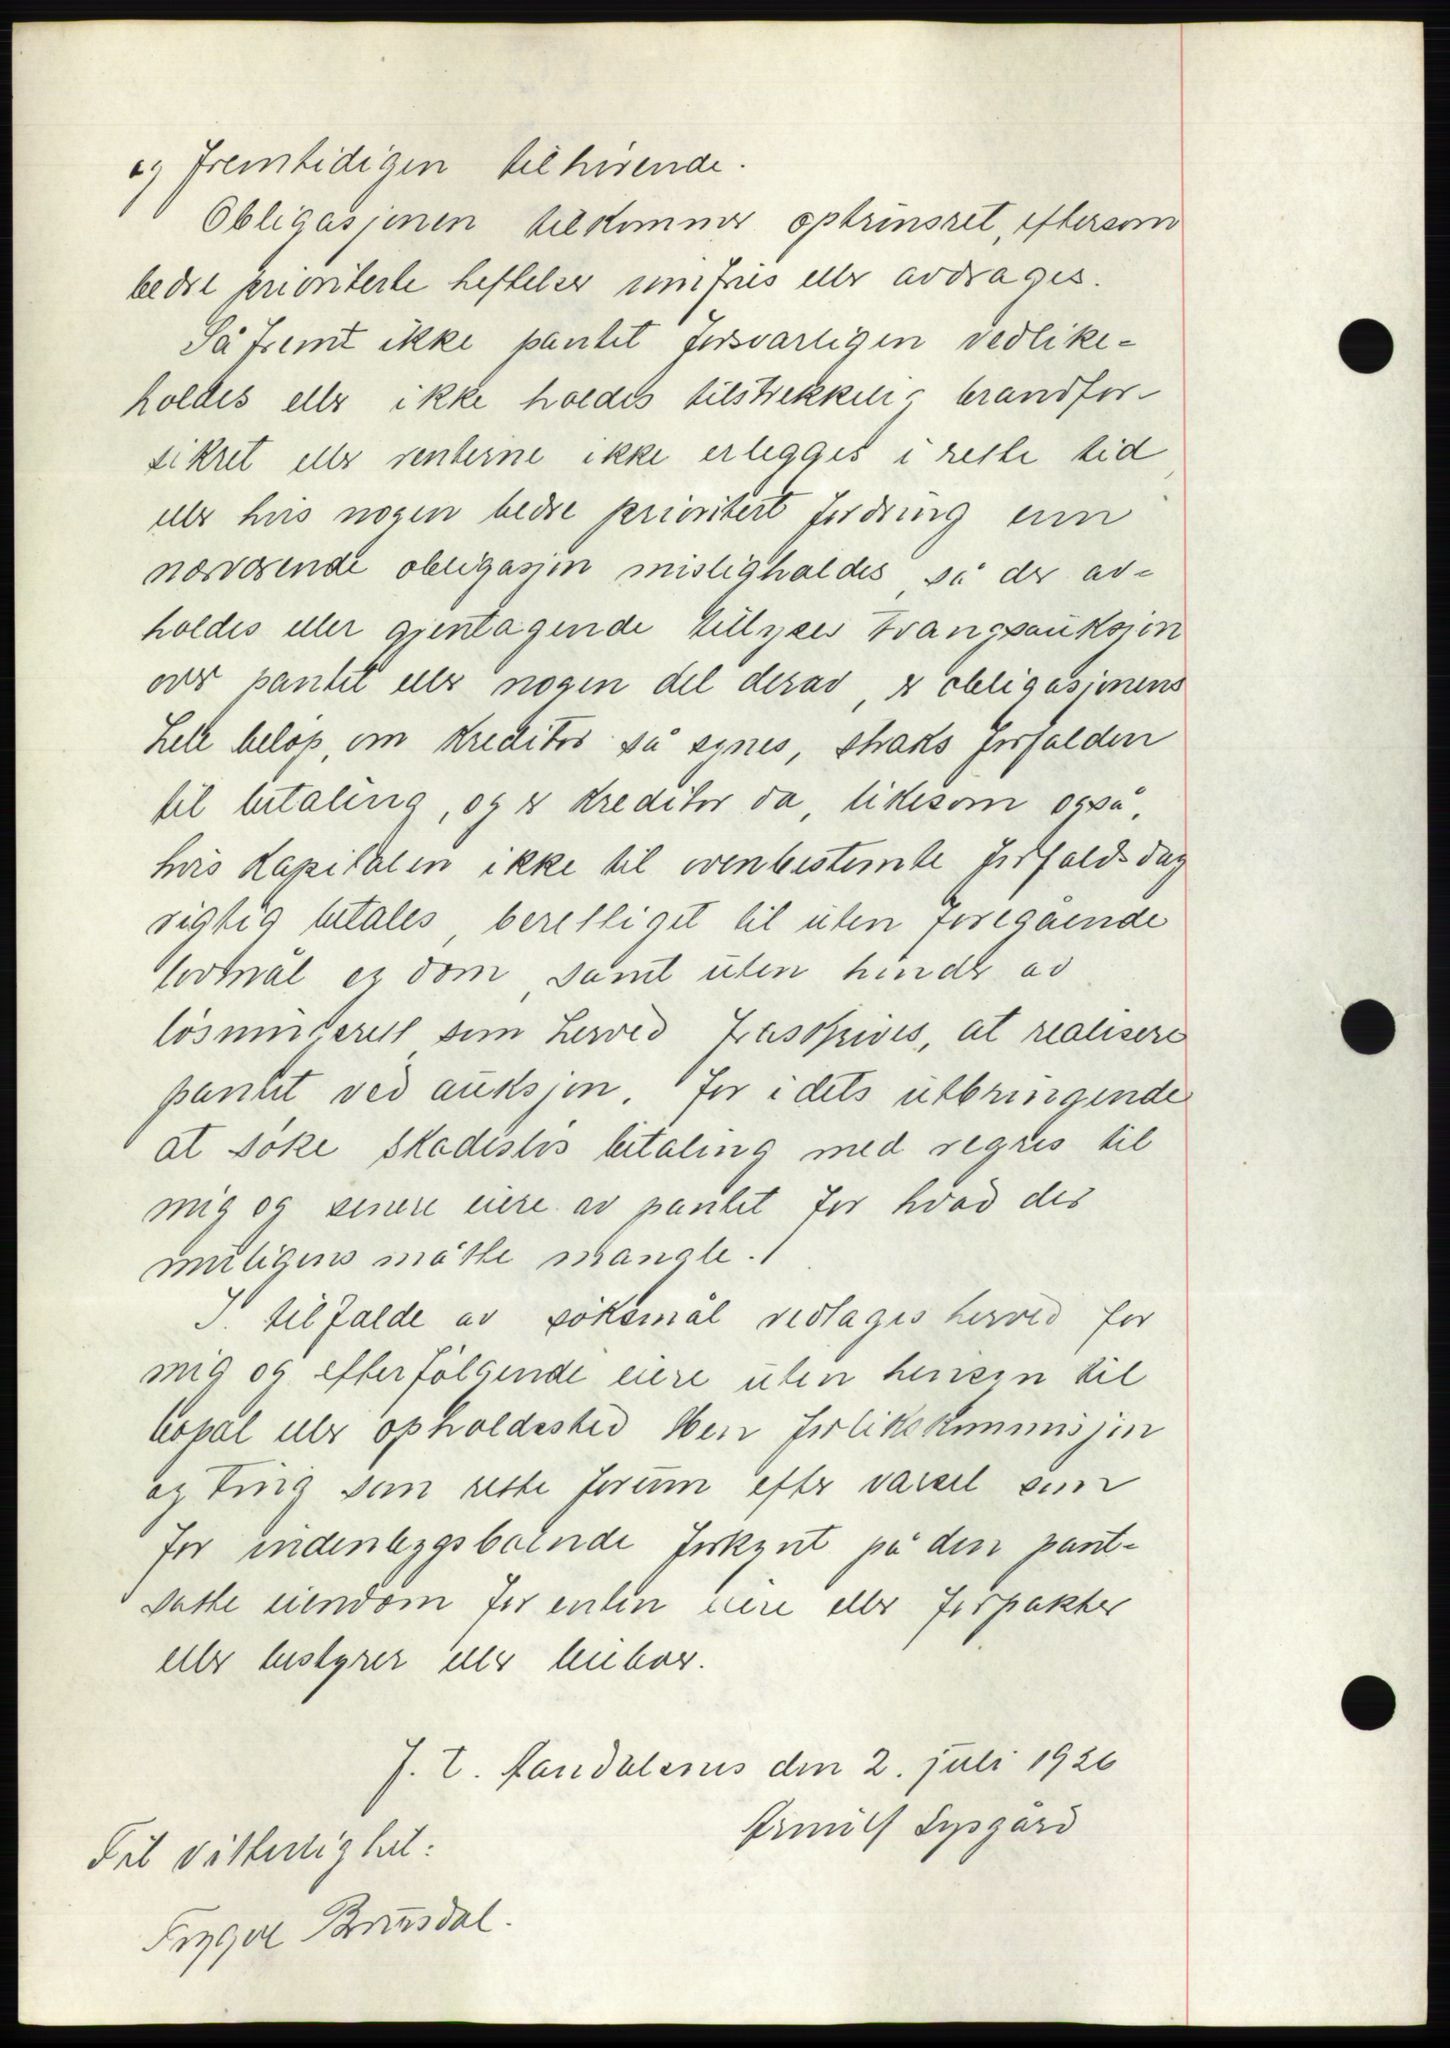 og fremtidigen tilhörende.
Obligasjonen tilkommer optrinsret, eftersom
bedre prioriterte heftelser innfries eller avdrages.
Så fremt ikke pantet forsvarligen vedlike-
holdes eller ikke holdes tilstrekkelig brandfor-
sikret eller renterne ikke erlegges i rette tid,
eller hvis nogen bedre prioritert fordring enn
nærværende obligasjon misligholdes, så der av-
holdes eller gjentagende tillyses tvangsauksjon
over pantet eller nogen del derav, er obligasjonens
hele belöp, om kreditor så synes, straks forfalden
til betaling, og er kreditor da, likesom også,
hvis kapitalen ikke til ovenbestemte forfaldsdag
rigtig betales, berettiget til uten foregående
lovmål og dom, samt uten hinder av
lösningsrett som herved fraskrives, at realisere
pantet ved auksjon, for i dets utbringende
at söke skadeslös betaling med regres til
mig og senere eiere av pantet for hvad der
muligens måtte mangle.
I tilfælde av söksmål vedtages herved for
mig og efterfölgende eiere uten hensyn til
bopæl eller opholdssted Hen forlikskommisjon
og ting som rette forum efter varsel som
for indenbygsboende forkynt på den pant-
satte eiendom for enten eiere eller forpakter
eller bestyrer eller beboer.
J. t. Aandalsnes den 2. juli 1926
Arnulf Lysgård
Til vitterlighet:
Trygve Brunsdal.